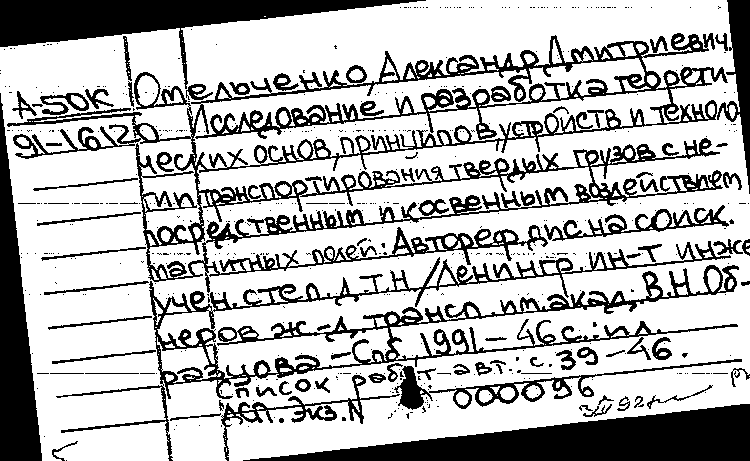 А-50К
91-16120
Отельченко, Александр Дмитриевич.
Исследование и разработка теорети-
ческих основ, принципов, устройств и техноло
гии транспортирования твердых грузов с не-
посредственным и косвенным воздействием
магнитных полей: Автореф. дис. на соиск.
учен. степ. д.т.н / Ленингр. ин-т инже
неров ж-д. трансп. им. акад. В.Н. Об-
разцова - Спб, 1991. - 46 с.: ил.
Список работ авт.: с. 39-46.
АСП. Экз. N 000096